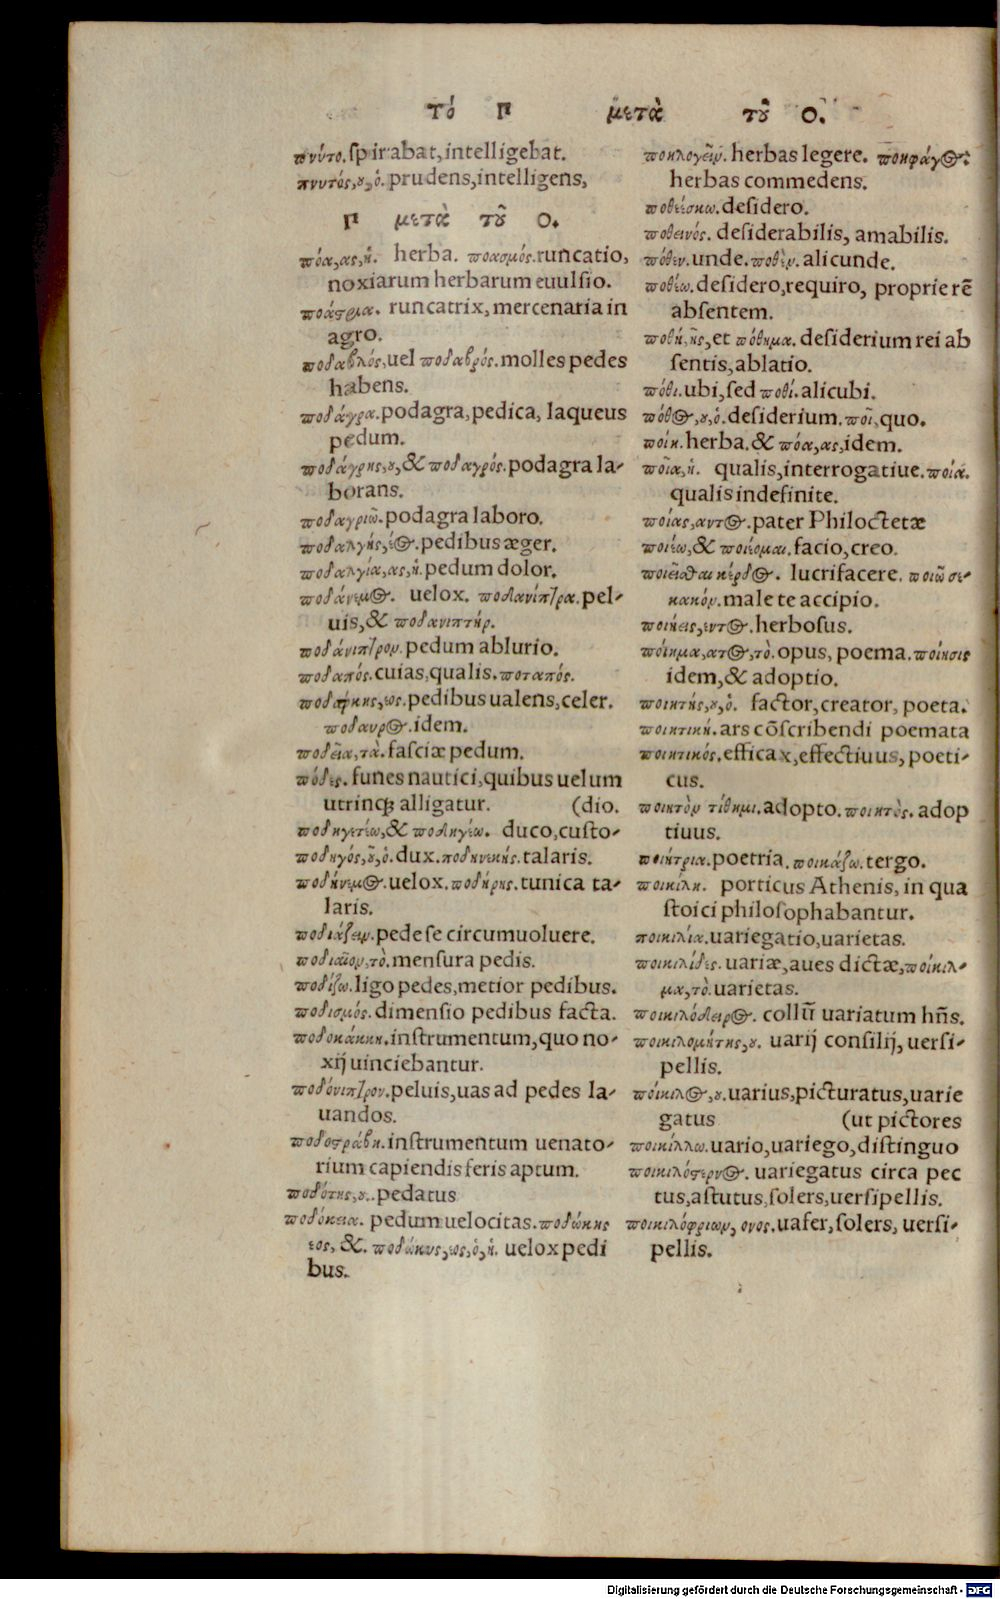 τό Π μετὰ τοῦ Ο.
πνύτο. spirabat, intelligebat.
πνυτός, ου, ὁ. prudens, intelligens,
Π μετὰ τοῦ Ο.
πόα, ας, ἡ. herba. ποασμός. runcatio,
noxiarum herbarum euulsio.
ποάστρια. runcatrix, mercenaria in
agro.
ποδαβλός, uel ποδαβρός. molles pedes
habens.
ποδάγρα. podagra, pedica, laqueus
pedum.
ποδάγρης, ου, & ποδαγρός. podagra la-
borans.
ποδαγριῶ. podagra laboro.
ποδαλγής, έος. pedibus æger.
ποδαλγία, ας, ἡ. pedum dolor.
ποδάνεμος. uelox. ποδανίπτρα. pel-
uis, & ποδανιπτήρ.
ποδάνιπτρον. pedum ablurio.
ποδαπός. cuias, qualis. ποταπός.
ποδάρκης, εος. pedibus ualens, celer.
ποδαυρος. idem.
ποδεῖα, τὰ. fasciæ pedum.
πόδες. funes nautici, quibus uelum
utrinq; alligatur. (dio.
ποδηγετέω, & ποδηγέω. duco, custo-
ποδηγός, οῦ, ὁ. dux. ποδηνεκής. talaris.
ποδήνεμος. uelox. ποδήρης. tunica ta-
laris.
ποδιάζειν. pede se circumuoluere.
ποδιαῖον, τὸ. mensura pedis.
ποδίζω. ligo pedes, metior pedibus.
ποδισμός. dimensio pedibus facta.
ποδοκάκκη. instrumentum, quo no-
xij uinciebantur.
ποδόνιπτρον. peluis, uas ad pedes la-
uandos.
ποδοστράβη. instrumentum uenato-
rium capiendis feris aptum.
ποδότης, ου.. pedatus
ποδόκεια. pedum uelocitas. ποδώκης
εος, &. ποδώκυς, εος, ὁ, ἡ. uelox pedi
bus.
ποηλογεῖν. herbas legere. ποηφάγος:
herbas commedens.
ποθέισκω. desidero.
ποθεινός. desiderabilis, amabilis.
πόθεν. unde. ποθὲν. alicunde.
ποθέω. desidero, requiro, proprie rē
absentem.
ποθή, ῆς, et πόθημα. desiderium rei ab
sentis, ablatio.
πόθι. ubi, sed ποθί. alicubi.
πόθος, ου, ὁ. desiderium. ποῖ, quo.
ποίη. herba. & πόα, ας, idem.
ποῖα, ἡ. qualis, interrogatiue. ποιά.
qualis indefinite.
ποίας, αντος. pater Philoctetæ
ποιέω, & ποιέομαι. facio, creo.
ποιεῖσθαι κέρδος. lucrifacere. ποιῶ σε-
κακόν. male te accipio.
ποιήεις, εντος. herbosus.
πόιημα, ατος, τὸ. opus, poema. πόιησις
idem, & adoptio.
ποιητής, οῦ, ὁ. factor, creator, poeta.
ποιητική. ars cōscribendi poemata
ποιητικός. efficax, effectiuus, poeti-
cus.
ποιητὸν τίθημι. adopto. ποιητὸς. adop
tiuus.
ποιήτρια. poetria. ποικάζω. tergo.
ποικίλη. porticus Athenis, in qua
stoici philosophabantur.
ποικιλία. uariegatio, uarietas.
ποικιλίδες. uariæ, aues dictæ, ποίκιλ-
μα, τὸ. uarietas.
ποικιλόδειρος. collū uariatum hñs.
ποικιλομήτης, ου. uarij consilij, uersi-
pellis.
πόικιλος, ου. uarius, picturatus, uarie
gatus (ut pictores
ποικίλλω. uario, uariego, distinguo
ποικιλόστερνος. uariegatus circa pec
tus, astutus, solers, uersipellis.
ποικιλόφριων, ονος. uafer, solers, uersi-
pellis.
Digitalisierung gefördert durch die Deutsche Forschungsgemeinschaft - DFG